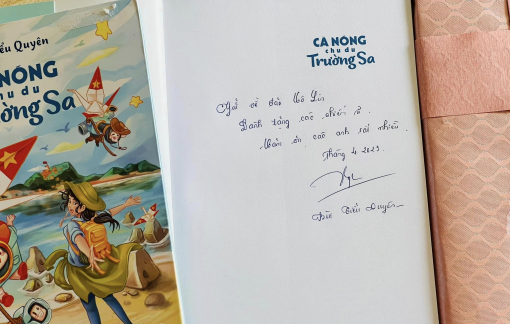 ểu Quyên
A NÔNG
chu du
ường Sa
CA NÔNG
chu du
Trường Sa
Gửi về đảo
Dành tặng các chiến sĩ.
Cảm ơn các anh rất nhiều.
Tháng 4.2023.
Bùi Tiểu Quyên